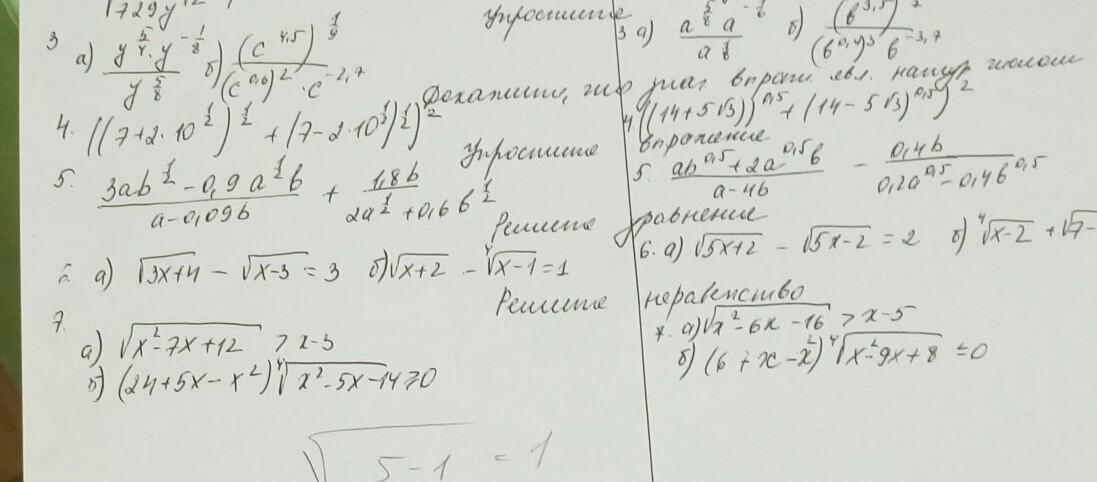 √729y¹²
Упростите
3 а) (y^(5/4)·y^(-1/8))/(y^(5/8)) б) ((c^(4,5))^(1/9))/((c^(0,6))²·c^(-2,7))
3 а) (a^(5/8) a^(-1/6))/(a^(1/8)) б) /((b^(0,9))³ b^(-3,7))
Докажите, что знач. выраж. явл. натур числом
4. ((7+2·10^(1/2))^(1/2) + (7-2·10^(1/2))^(1/2))²
4. ((14+5√3))^(0,5) + (14-5√3)^(0,5))²
Упростите выражение
5. (3ab^(1/2) - 0,9a^(1/2)b)/(a-0,09b) + (1,8b)/(2a^(1/2)+0,6b^(1/2))
5. (ab^(0,5)+2a^(0,5)b)/(a-4b) - (0,4b)/(0,2a^(0,5)-0,4b^(0,5))
Решите уравнение
а) √(3x+4) - √(x-3) = 3 б) √(x+2) - ⁴√(x-1) = 1
6. а) √(5x+2) - √(5x-2) = 2 б) ⁴√(x-2) + √7-
Решите неравенство
7.
а) √(x²-7x+12) > x-3
а) √(x²-6x-16) > x-5
б) (24+5x-x²) ⁴√(x²-5x-14) ≥ 0
б) (6+x-x²) ⁴√(x²-9x+8) ≤ 0
√(5-1) = 1